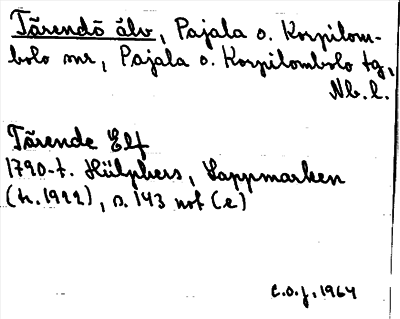 Tärendö älv, Pajala o. Korpilom-
bolo snr, Pajala o. Korpilombolo tg,
Nb. l.
Tärende Elf
1790-t. Hülphers, Lappmarken
(tr. 1922), s. 143 not (e)
C.O.J. 1964